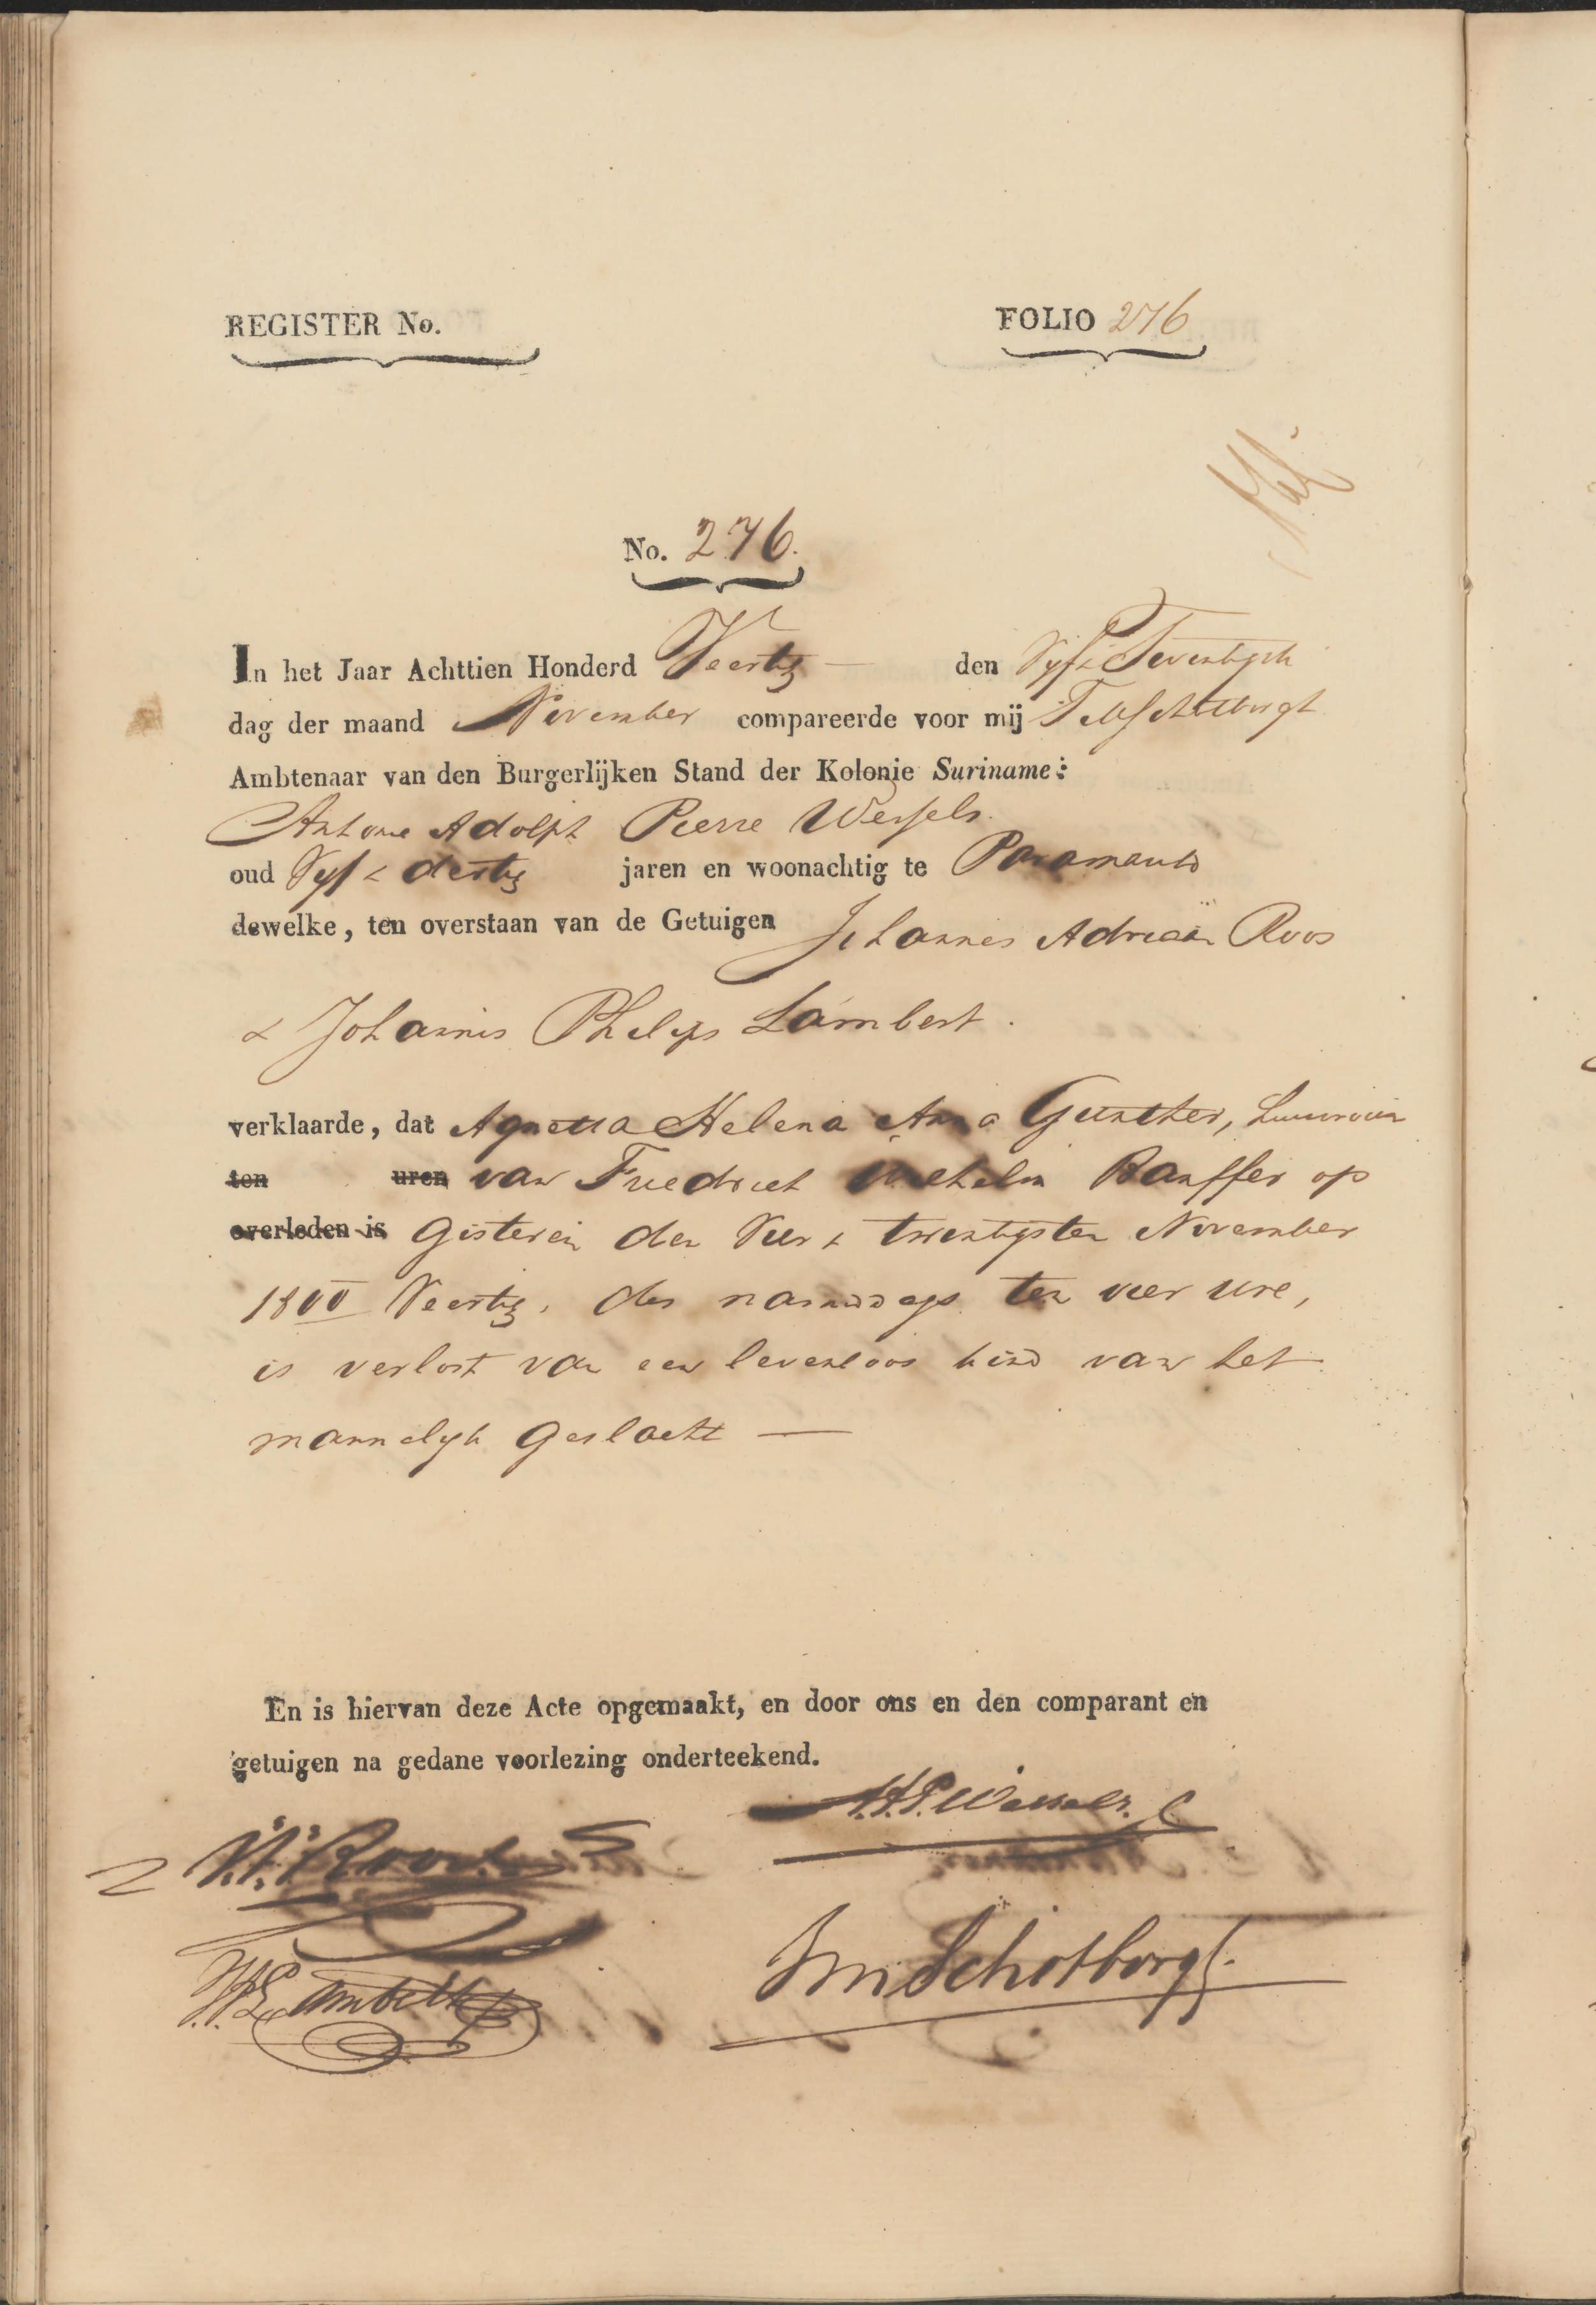 REGISTER No.
FOLIO 276
No. 276.
In het Jaar Achttien Honderd Veertig — den Vyf & Twentigste
dag der maand November compareerde voor mij Schotborgh
Ambtenaar van den Burgerlijken Stand der Kolonie Suriname:
Antoine Adolph Pierre Wessels
oud Vyf & dertig jaren en woonachtig te Paramaribo
dewelke, ten overstaan van de Getuigen Johannes Adriaän Roos
& Johannes Philips Lambert.
verklaarde, dat Agnetta Helena Anna Gunther, huisvrouw
ten uren van Friedrich Wilhelm Ranffer op
overleden is Gisteren den Vier & twentigsten November
1800 Veertig, des namiddags ten vier ure,
is verlost van een levenloos kind van het
mannelyk Geslacht —
En is hiervan deze Acte opgemaakt, en door ons en den comparant en
getuigen na gedane voorlezing onderteekend.
A.A.P. Wessels.
J.A. Roos
Schotborgh
J.P. Lambert